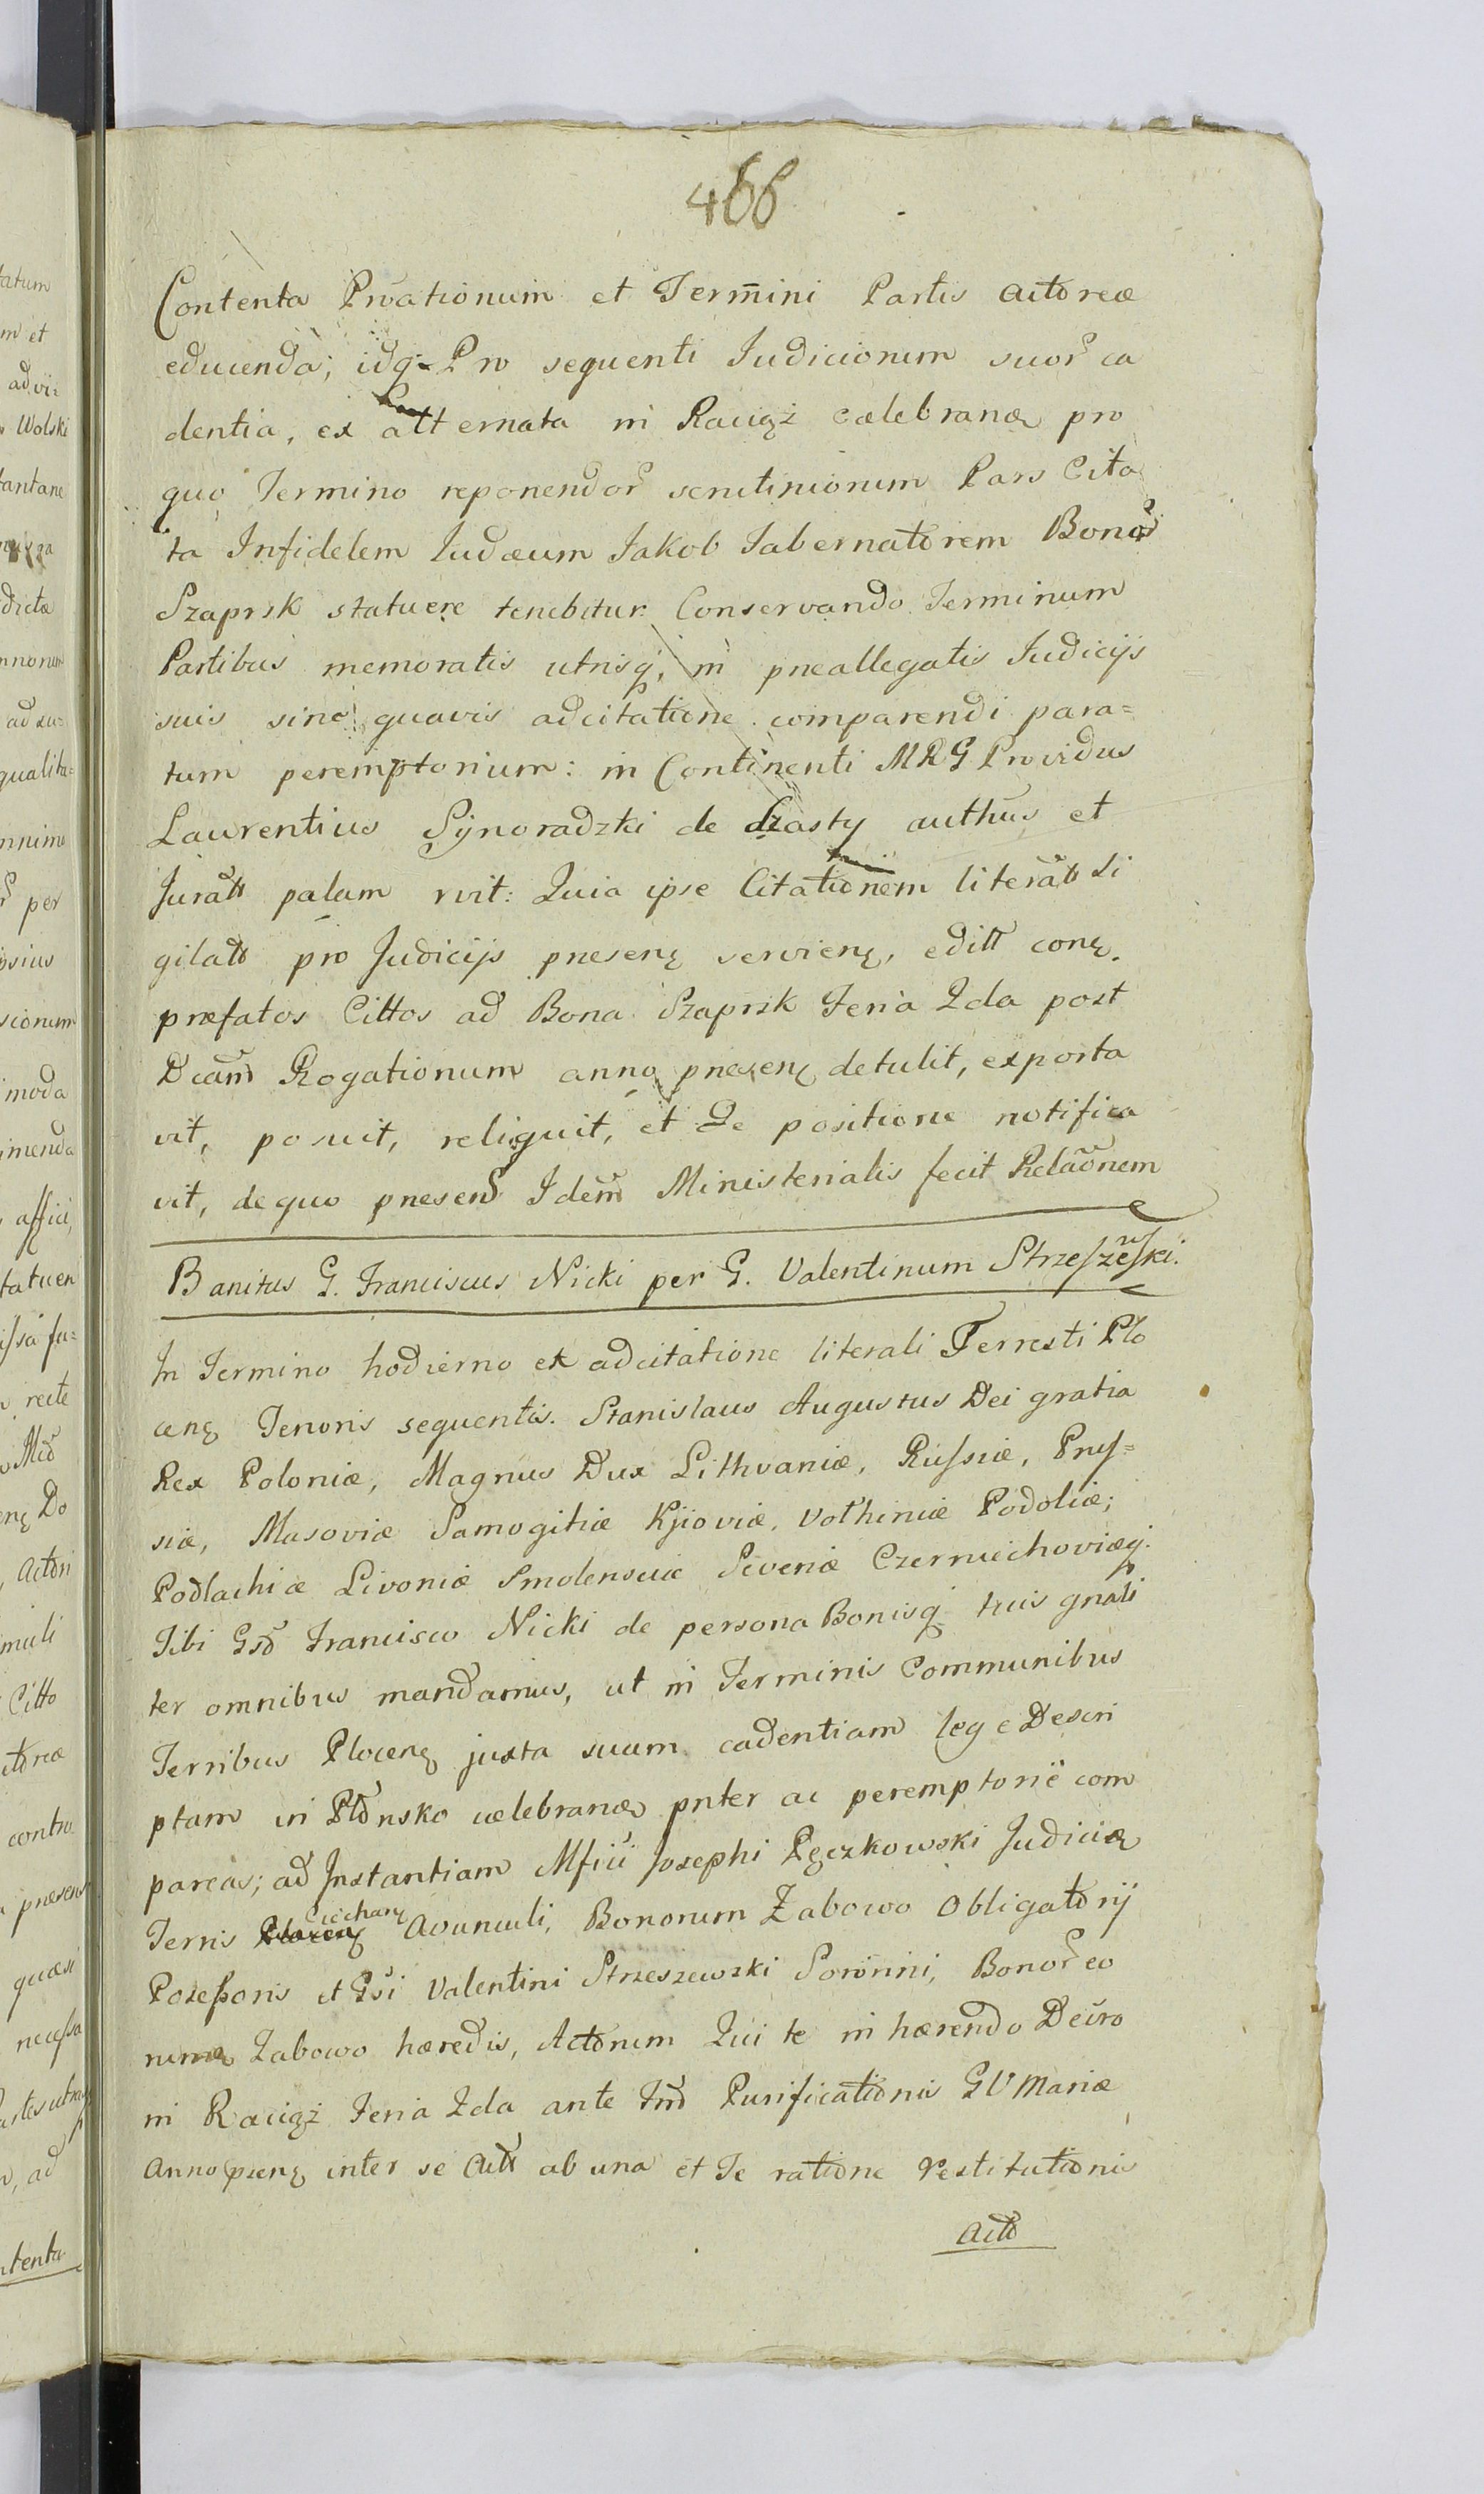 466
Contenta Prvationum et Termini Partis Actoreæ
educenda; idq Pro sequenti Judiciorum suor ca
dentia, ex alternata in Raciąż cælebranæ pro
quo Termino reponendor scrutiniorum Pars Cita
ta Infidelem Judæum Jakob Tabernatorem Bonor
Szaprsk statuere tenebitur. Conservando Terminum
Partibus memoratis utrisq, in preallegatis Judicijs
suis sine quavis adcitatione comparendi para=
tum peremptorium: in Continenti MRG Providus
Laurentius Synoradzki de dzasty authus et
Juratt palam rvit: Quia ipse Citationem literatt Si
gilatt pro Judicijs presenę servienę, editt conę.
præfatos Cittos ad Bona Szaprsk Feria 2da post
Dcam Rogationum anno presenę detulit, exporta
vit, posuit, reliquit, et de positione notifica
vit, de quo presens Idem Ministerialis fecit Relaonem
Banitus G. Franciscus Nicki per G. Valentinum Strzeszewski.
In Termino hodierno ex adcitatione literali Terresti Plo
cenę Tenoris sequentis. Stanislaus Augustus Dei gratia
Rex Poloniæ, Magnus Dux Lithvaniæ, Russiæ, Prus=
siæ, Masoviæ Samogitiæ Kjioviæ, Volhiniæ Podoliæ;
Podlachiæ Livoniæ Smolensciæ Severiæ Czerniechoviæq.
Tibi Gso Francisco Nicki de persona Bonisq tuis gnali
ter omnibus mandamus, ut in Terminis Communibus
Terribus Plocenę juxta suam cadentiam lege Descri
ptam in Płonsko cælebranæ pnter ac peremptorië com
pareas; ad Instantiam Mfici Josephi Pęczkowski Judicis
Terris Ciechanę Avunculi, Bonorum Żabowo Obligatorij
Possessoris et Gsi Valentini Strzeszewski Sororini, Bonor eo
rumę Żabowo hæredis, Actorum Qui te in hærendo Decro
in Raciąż Feria 2da ante Fm Purificationis GV Mariæ
Anno pzenę inter se Actt ab una et Te ratione restitutionis
Actt
tatum
m et
ad vi=
Wolski
tantane
dicta
ad su=
qualita=
per
scionum
moda
imenda
affici,
tatuen
recte
Do
Actori
Citto
contro
presens
quæsi
necessa
ad
ntenta